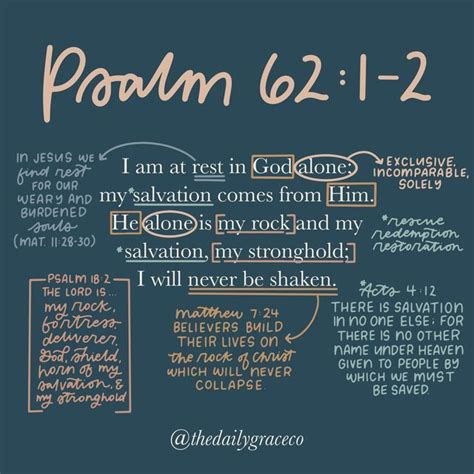 Psalm 62:1-2
IN JESUS WE
find rest
FOR OUR
WEARY AND
BURDENED
souls
(MAT. 11:28-30)
I am at rest in God alone;
my *salvation comes from Him.
He alone is my rock and my
*salvation, my stronghold;
I will never be shaken.
EXCLUSIVE,
INCOMPARABLE,
SOLELY
*rescue
redemption
restoration
PSALM 18:2
THE LORD IS...
my rock,
fortress
deliverer,
God, shield,
horn of my
salvation, &
my stronghold
matthew 7:24
BELIEVERS BUILD
THEIR LIVES ON
the rock of Christ
WHICH WILL NEVER
COLLAPSE.
*Acts 4:12
THERE IS SALVATION
IN NO ONE ELSE; FOR
THERE IS NO OTHER
NAME UNDER HEAVEN
GIVEN TO PEOPLE BY
WHICH WE MUST
BE SAVED.
@thedailygraceco